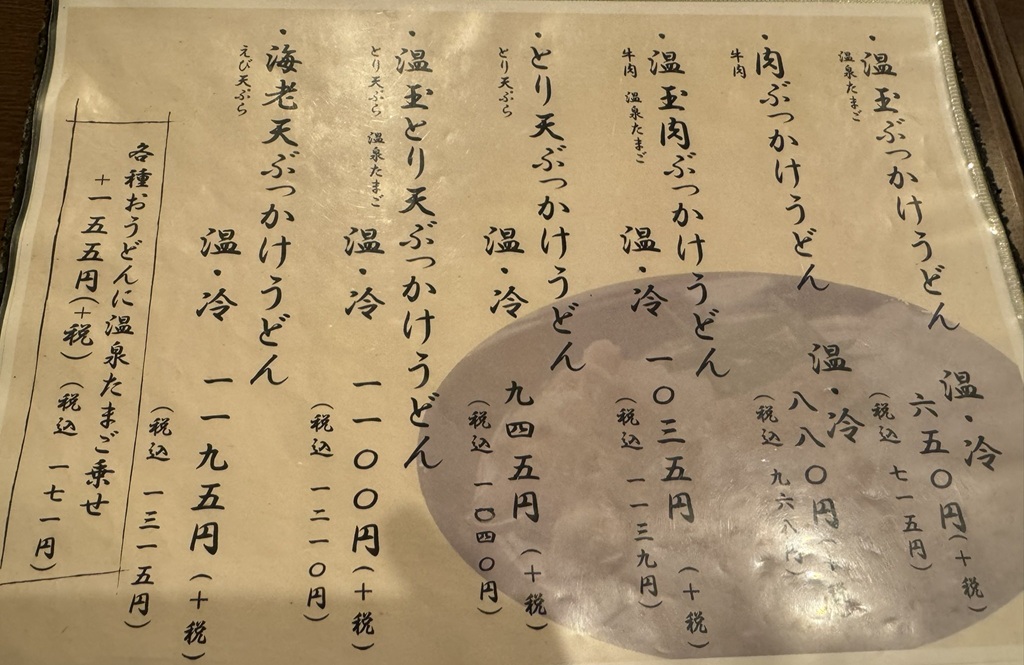 ・温玉ぶっかけうどん
温泉たまご
温・冷
六五〇円(+税)
(税込 七一五円)
・肉ぶっかけうどん
牛肉
温・冷
八八〇円(+税)
(税込 九六八円)
・温玉肉ぶっかけうどん
牛肉 温泉たまご
温・冷
一〇三五円(+税)
(税込 一一三九円)
・とり天ぶっかけうどん
とり天ぷら
温・冷
九四五円(+税)
(税込 一〇四〇円)
・温玉とり天ぶっかけうどん
とり天ぷら 温泉たまご
温・冷
一一〇〇円(+税)
(税込 一二一〇円)
・海老天ぶっかけうどん
えび天ぷら
温・冷
一一九五円(+税)
(税込 一三一五円)
各種おうどんに温泉たまご乗せ
+一五五円(+税)
(税込 一七一円)